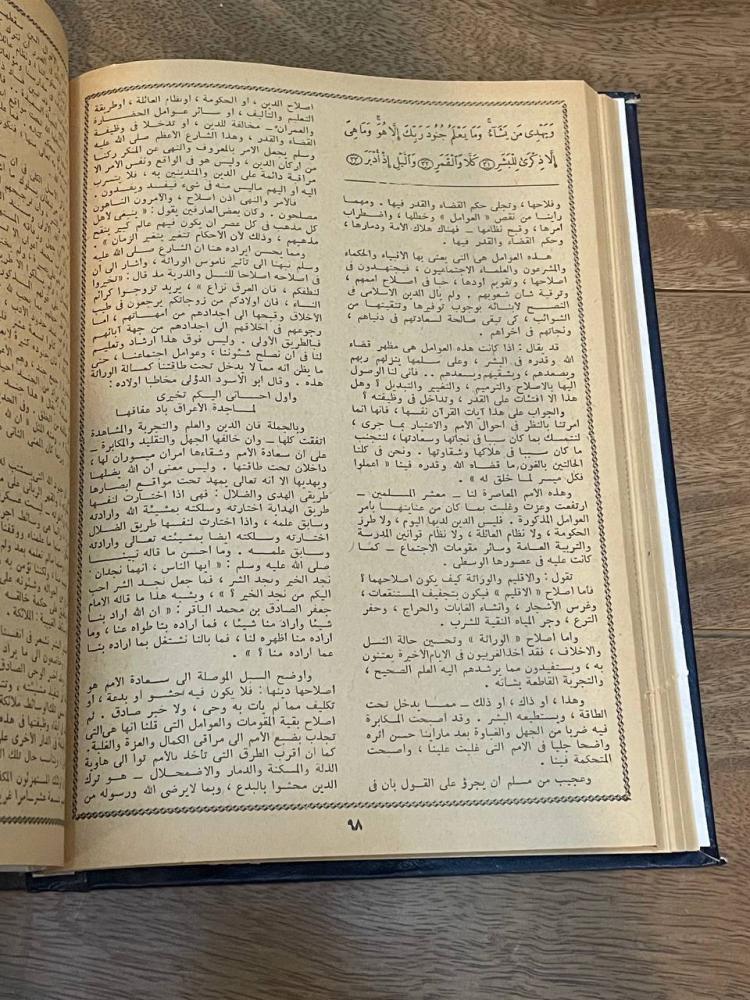 وَيَهْدِى مَن يَشَآءُ ۚ وَمَا يَعْلَمُ جُنُودَ رَبِّكَ إِلَّا هُوَ ۚ وَمَا هِىَ
إِلَّا ذِكْرَىٰ لِلْبَشَرِ ﴿٣١﴾ كَلَّا وَٱلْقَمَرِ ﴿٣٢﴾ وَٱلَّيْلِ إِذْ أَدْبَرَ ﴿٣٣﴾
وفلاحها ، وتجلى حكم القضاء والقدر فيها . ومهما
رأينا من نقص « العوامل » وخطلها ، واضطراب
أمرها ، وقبح نظامها ــ فهناك هلاك الأمة ودمارها ،
وحكم القضاء والقدر فيها .
هذه العوامل هى التى يعنى بها الأنبياء والحكماء
والمشرعون والعلماء الاجتماعيون ، فيجتهدون فى
اصلاحها ، وتقويم أودها ، حبا فى اصلاح أممهم ،
وترقية شأن شعوبهم . ولم يأل الدين الاسلامى فى
النصح لأبنائه بوجوب توفيرها وتنقيتها من
الشوائب ، كى تبقى صالحة لسعادتهم فى دنياهم ،
ونجاتهم فى أخراهم .
قد يقال : اذا كانت هذه العوامل هى مظهر قضاء
الله وقدره فى البشر ، وعلى سلمها ينزلهم ربهم
ويصعدهم ، ويشقيهم ويسعدهم .. فأنى لنا الوصول
اليها بالاصلاح والترميم ، والتغيير والتبديل ؟ وهل
هذا الا افتئات على القدر ، وتداخل فى وظيفته ؟
والجواب على هذا آيات القرآن نفسها ، فانها انما
أمرتنا بالنظر فى أحوال الأمم والاعتبار بما جرى ،
لنتمسك بما كان سببا فى نجاتها وسعادتها ، لنتجنب
ما كان سببا فى هلاكها وشقاوتها . ونحن فى كلتا
الحالتين بالغون ما قضاه الله وقدره فينا « اعملوا
فكل ميسر لما خلق له » .
وهذه الأمم المعاصرة لنا ــ معشر المسلمين ــ
ارتفعت وعزت وغلبت بما كان من عنايتها بأمر
العوامل المذكورة . فليس الدين لديها اليوم ، ولا طرز
الحكومة ، ولا نظام العائلة ، ولا نظام قوانين المدرسة
والتربية العامة وسائر مقومات الاجتماع ــ كما
كانت عليه فى عصورها الوسطى .
تقول : والاقليم والوراثة كيف يكون اصلاحهما ؟
فأما اصلاح « الاقليم » فيكون بتجفيف المستنقعات ،
وغرس الأشجار ، وانشاء الغابات والحراج ، وحفر
الترع ، وجر المياه النقية للشرب .
وأما اصلاح « الوراثة » وتحسين حالة النسل
والأخلاف ، فقد أخذ الغربيون فى الأيام الأخيرة يعتنون
به ، ويستفيدون مما يرشدهم اليه العلم الصحيح ،
والتجربة القاطعة بشأنه .
وهذا ، أو ذاك ، أو ذلك ــ مما يدخل تحت
الطاقة ، ويستطيعه البشر . وقد أصبحت المكابرة
فيه ضربا من الجهل والغباوة بعد ما رأينا حسن أثره
واضحا جليا فى الأمم التى غلبت علينا ، وأصبحت
المتحكمة فينا .
وعجيب من مسلم أن يجرؤ على القول بأن فى
اصلاح الدين ، أو الحكومة ، أو نظام العائلة ، أو طريقة
التعليم والتأليف ، أو سائر عوامل الحضارة
والعمران ــ مخالفة للدين ، أو تدخلا فى وظيفة
القضاء والقدر ، وهذا الشارع الأعظم صلى الله عليه
وسلم يجعل الأمر بالمعروف والنهى عن المنكر ركنا
من أركان الدين ، وليس هو فى الواقع ونفس الأمر الا
مراقبة دائمة على الدين والمتدينين به ، فلا يتسرب
اليه أو اليهم ما ليس منه فى شىء فيفسد ويفسدون .
فالأمر والنهى اذن اصلاح ، والآمرون الناهون
مصلحون . وكان بعض العارفين يقول : « ينبغى لأهل
كل مذهب فى كل عصر أن يكون فيهم عالم كبير ينقح
مذهبهم ، وذلك لأن الأحكام تتغير بتغير الزمان » .
ومما يحسن ايراده هنا أن الشارع صلى الله عليه
وسلم نبهنا الى تأثير ناموس الوراثة ، وأشار الى أن
فى اصلاحه اصلاحا للنسل والذرية مذ قال : « تخيروا
لنطفكم ، فان العرق نزاع » ، يريد تزوجوا كرائم
النساء ، فان أولادكم من زوجاتكم يرجعون فى طيب
الأخلاق وقبحها الى أجدادهم من أمهاتهم ، أما
رجوعهم فى أخلاقهم الى أجدادهم من جهة آبائهم
فبالطريق الأولى . وليس فوق هذا ارشاد وتعليم
لنا فى أن نصلح شئوننا ، وعوامل اجتماعنا ، حتى
ما يظن أنه مما لا يدخل تحت طاقتنا كمسألة الوراثة
هذه . وقال أبو الأسود الدؤلى مخاطبا أولاده :
وأول احسانى اليكم تخيرى
لماجدة الأعراق باد عفافها
وبالجملة فان الدين والعلم والتجربة والمشاهدة
اتفقت كلها ــ وان خالفها الجهل والتقليد والمكابرة ــ
على أن سعادة الأمم وشقاءها أمران ميسوران لها ،
داخلان تحت طاقتها . وليس معنى أن الله يضلها
ويهديها الا أنه تعالى يمهد تحت مواقع أبصارها
طريقى الهدى والضلال : فهى اذا اختارت لنفسها
طريق الهداية اختارته وسلكته بمشيئة الله وارادته
وسابق علمه ، واذا اختارت لنفسها طريق الضلال
اختارته وسلكته أيضا بمشيئته تعالى وارادته
وسابق علمه . وما أحسن ما قاله نبينا
صلى الله عليه وسلم : « أيها الناس ، انهما نجدان :
نجد الخير ونجد الشر ، فما جعل نجد الشر أحب
اليكم من نجد الخير ؟ » . ويشبه هذا ما قاله الامام
جعفر الصادق بن محمد الباقر : « ان الله أراد بنا
شيئا وأراد منا شيئا ، فما أراده بنا طواه عنا ، وما
أراده منا أظهره لنا ، فما بالنا نشتغل بما أراده بنا
عما أراده منا ؟ » .
وأوضح السبل الموصلة الى سعادة الأمم هو
اصلاحها دينها : فلا يكون فيه حشو أو بدعة ، أو
تكليف مما لم يأت به وحى ، ولا خبر صادق . ثم
اصلاح بقية المقومات والعوامل التى قلنا انها هى التى
تجذب بضبع الأمم الى مراقى الكمال والعزة والغلبة .
كما أن أقرب الطرق التى تأخذ بالأمم توا الى هاوية
الذلة والمسكنة والدمار والاضمحلال ــ هو ترك
الدين محشوا بالبدع ، وبما لا يرضى الله ورسوله من
٩٨